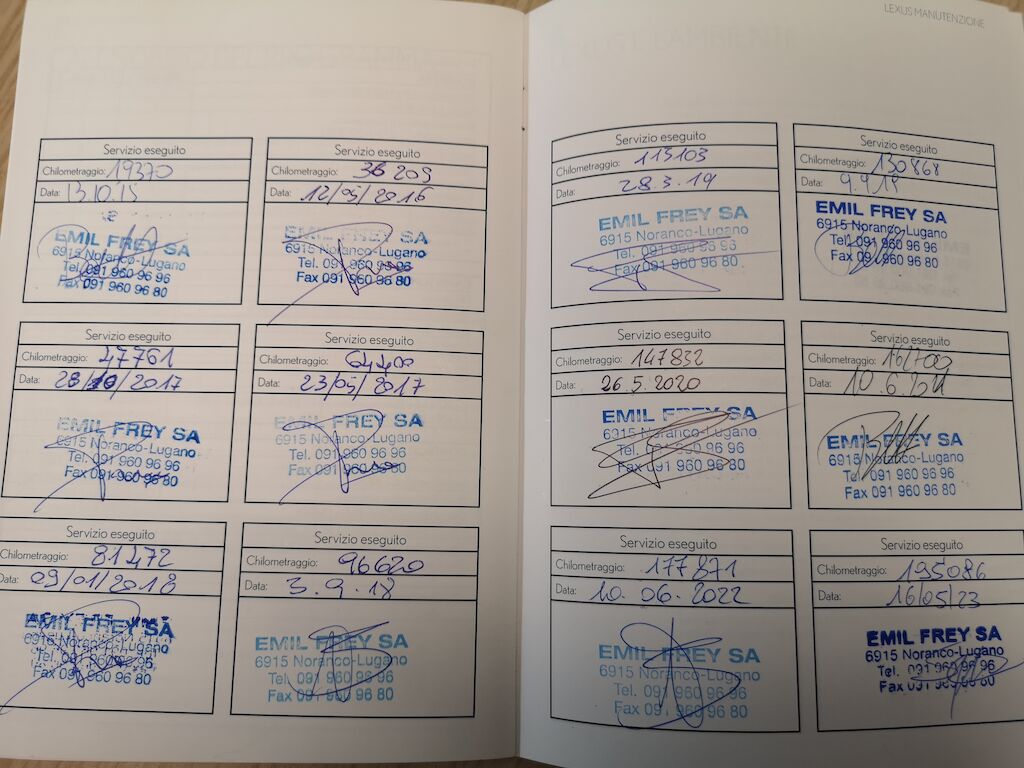 LEXUS MANUTENZIONE
Servizio eseguito
Chilometraggio: 19370
Data: 13.10.15
EMIL FREY SA
6915 Noranco-Lugano
Tel. 091 960 96 96
Fax 091 960 96 80
Servizio eseguito
Chilometraggio: 36209
Data: 12/05/2016
EMIL FREY SA
6915 Noranco-Lugano
Tel. 091 960 96 96
Fax 091 960 96 80
Servizio eseguito
Chilometraggio: 47761
Data: 2017
EMIL FREY SA
6915 Noranco-Lugano
Tel. 091 960 96 96
Fax 091 960 96 80
Servizio eseguito
Chilometraggio: 64400
Data: 23/05/2017
EMIL FREY SA
6915 Noranco-Lugano
Tel. 091 960 96 96
Fax 091 960 96 80
Servizio eseguito
Chilometraggio: 81472
Data: 09/01/2018
EMIL FREY SA
6915 Noranco-Lugano
Tel. 091 960 96 96
Fax 091 960 96 80
Servizio eseguito
Chilometraggio: 96620
Data: 3.9.18
EMIL FREY SA
6915 Noranco-Lugano
Tel. 091 960 96 96
Fax 091 960 96 80
Servizio eseguito
Chilometraggio: 113103
Data: 28.3.19
EMIL FREY SA
6915 Noranco-Lugano
Tel. 091 960 96 96
Fax 091 960 96 80
Servizio eseguito
Chilometraggio: 130868
Data: 9.9.19
EMIL FREY SA
6915 Noranco-Lugano
Tel. 091 960 96 96
Fax 091 960 96 80
Servizio eseguito
Chilometraggio: 147832
Data: 26.5.2020
EMIL FREY SA
6915 Noranco-Lugano
Tel. 091 960 96 96
Fax 091 960 96 80
Servizio eseguito
Chilometraggio: 161700
Data: 10.6.21
EMIL FREY SA
6915 Noranco-Lugano
Tel. 091 960 96 96
Fax 091 960 96 80
Servizio eseguito
Chilometraggio: 177871
Data: 10.06.2022
EMIL FREY SA
6915 Noranco-Lugano
Tel. 091 960 96 96
Fax 091 960 96 80
Servizio eseguito
Chilometraggio: 195086
Data: 16/05/23
EMIL FREY SA
6915 Noranco-Lugano
Tel. 091 960 96 96
Fax 091 960 96 80